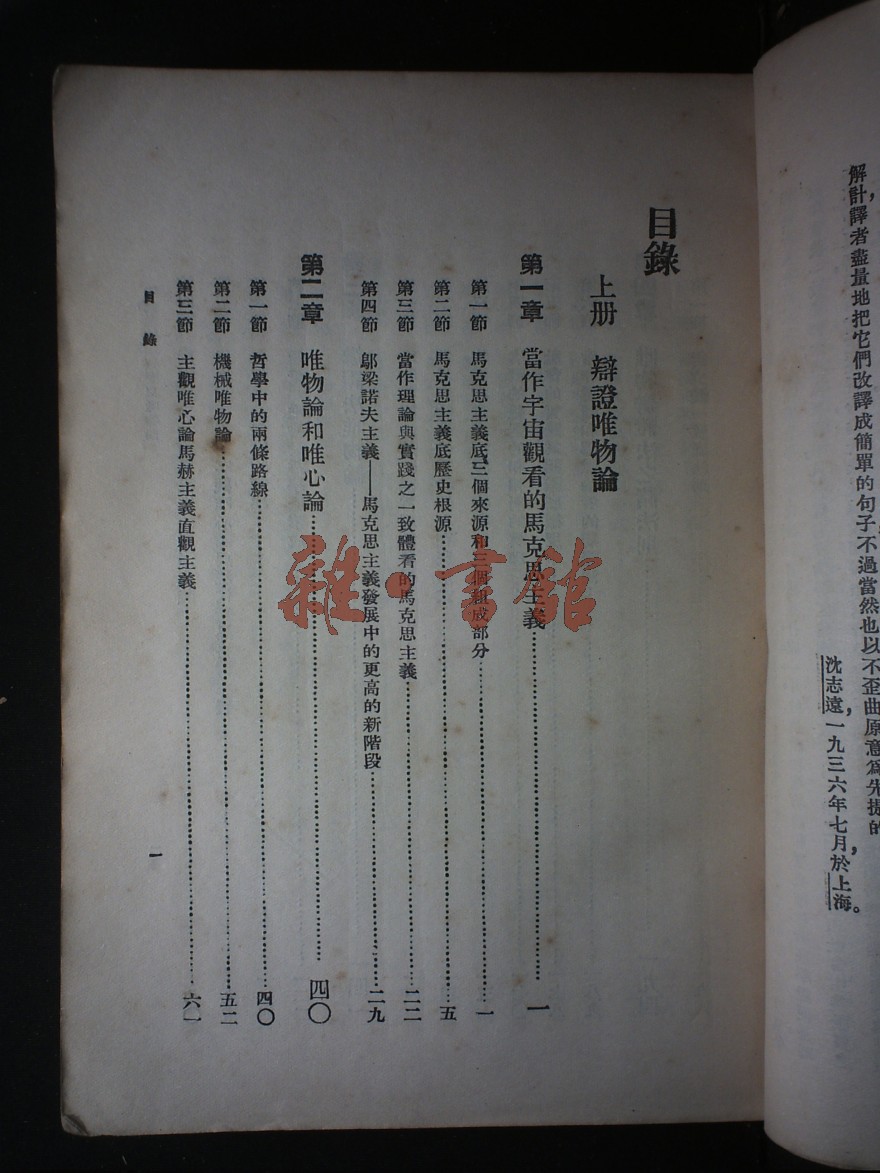 解，計譯者盡量地把它們改譯成簡單的句子不過當然也以不歪曲原意爲先提的
沈志遠，一九三六年七月，於上海。
目錄
上册 辯證唯物論
第一章 當作宇宙觀看的馬克思主義……一
第一節 馬克思主義底三個來源和三個組成部分……一
第二節 馬克思主義底歷史根源……五
第三節 當作理論與實踐之一致體看的馬克思主義……二二
第四節 鄔梁諾夫主義——馬克思主義發展中的更高的新階段……二九
第二章 唯物論和唯心論……四〇
第一節 哲學中的兩條路線……四〇
第二節 機械唯物論……五二
第三節 主觀唯心論馬赫主義直觀主義……六一
目錄
一
雜·書館